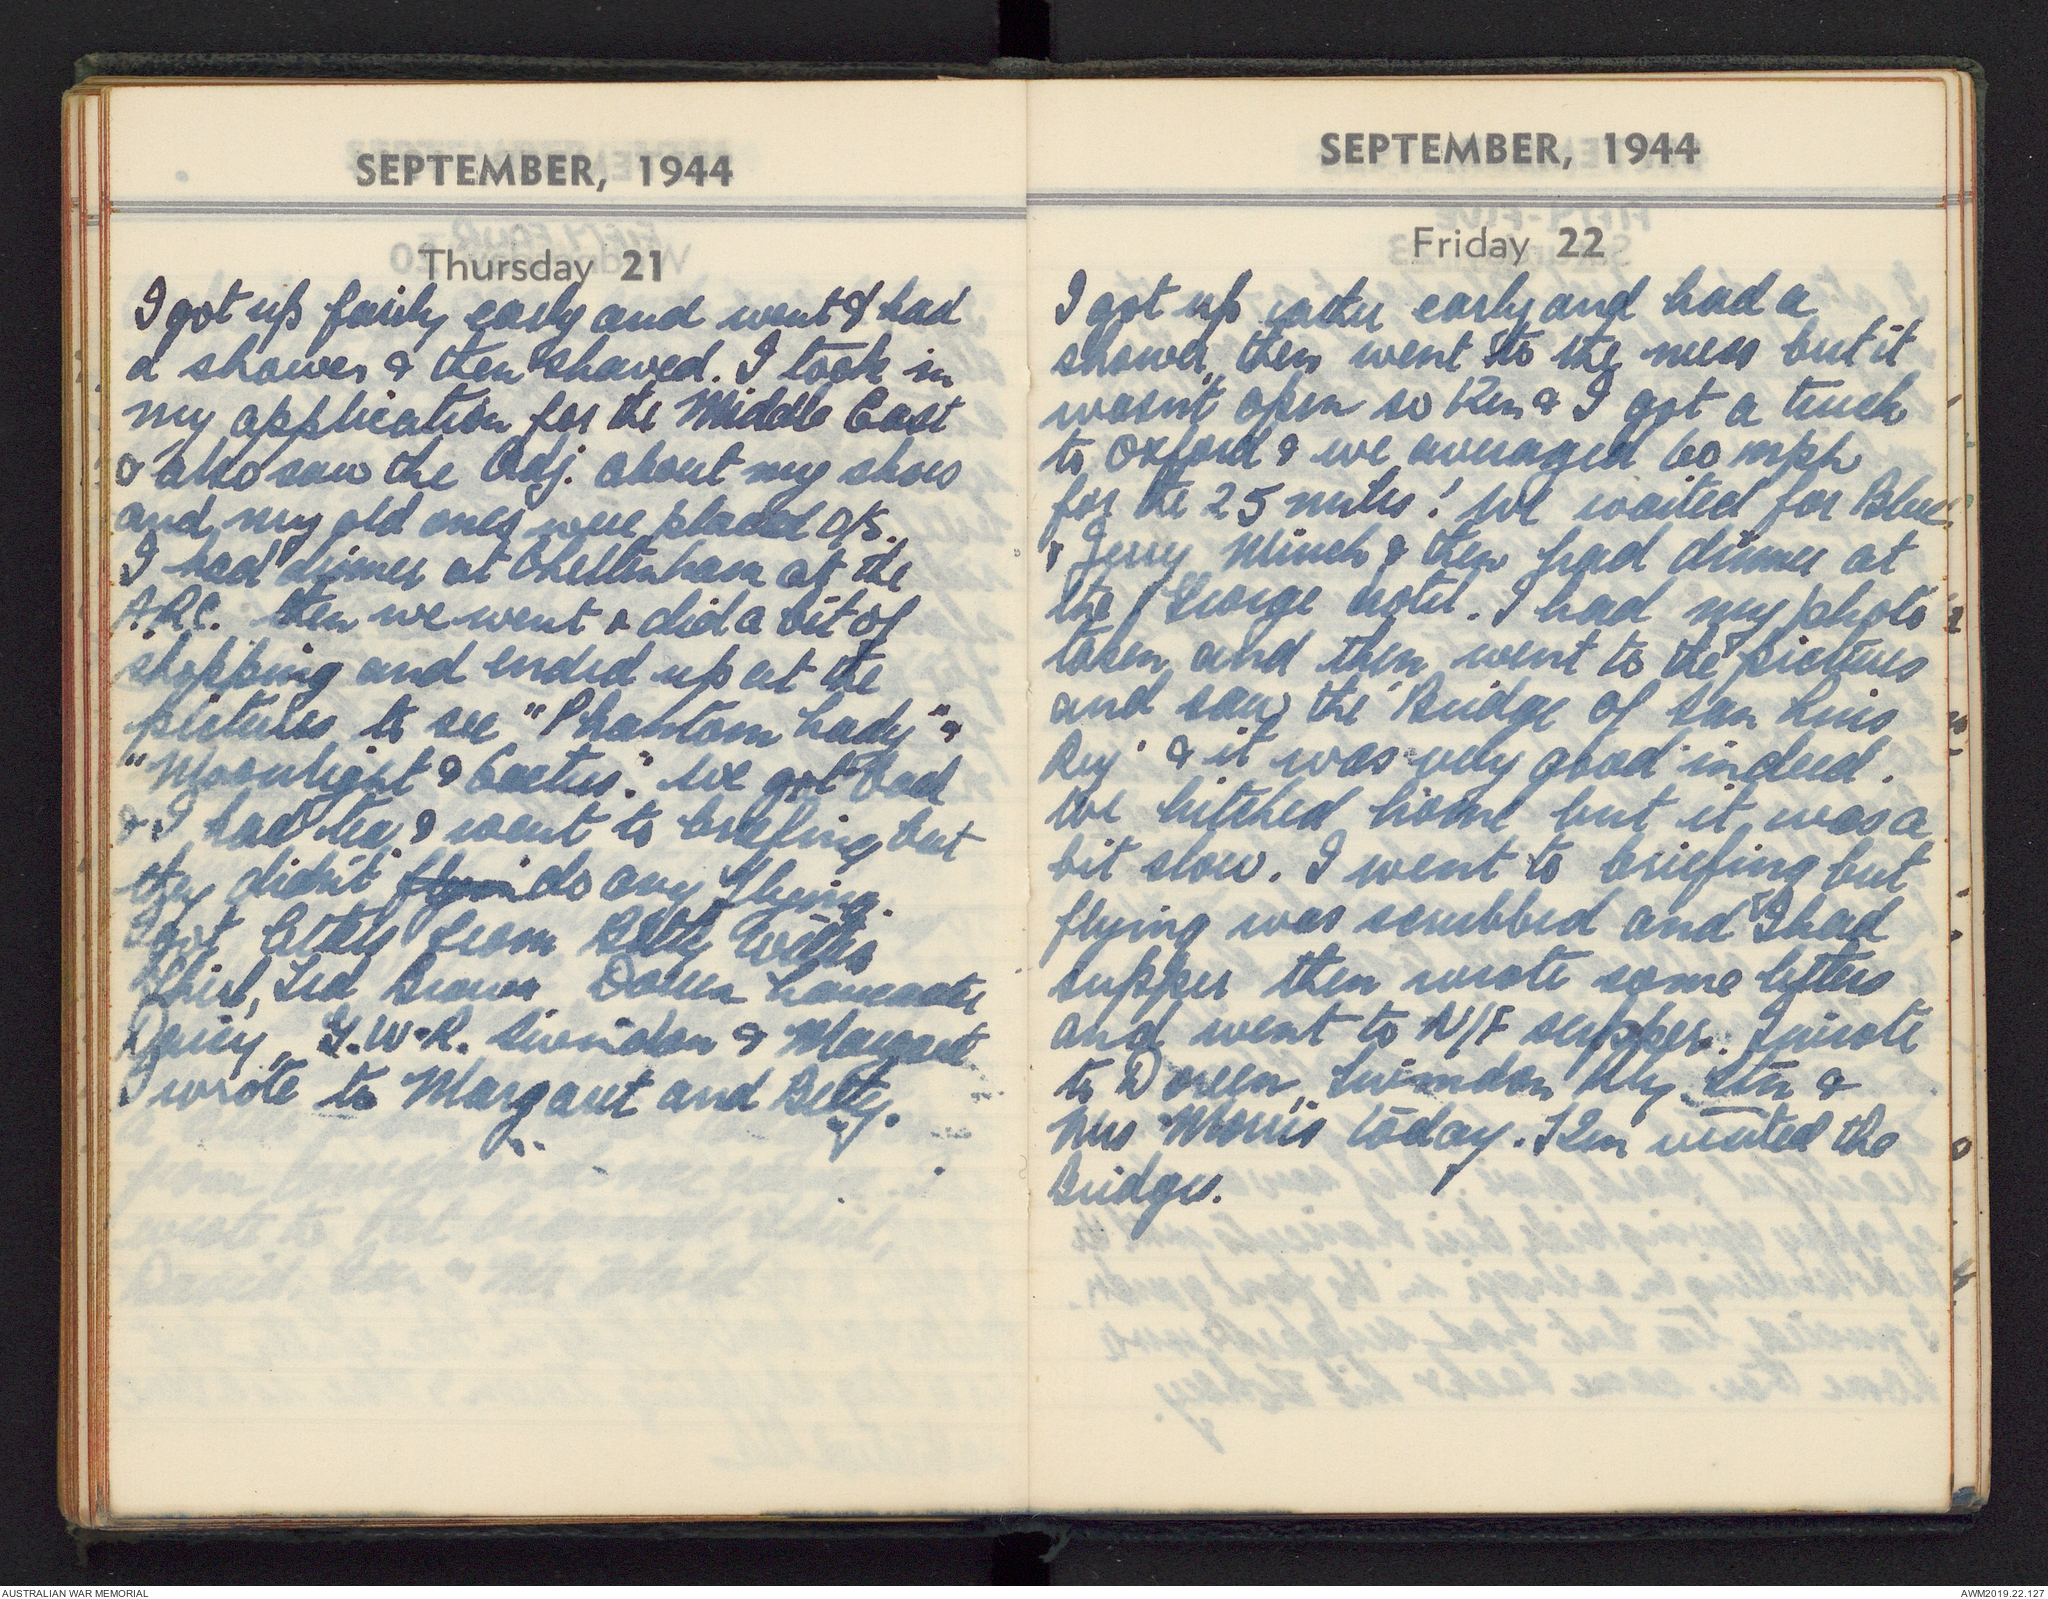 SEPTEMBER, 1944
Thursday 21
I got up fairly early and went & had
a shower & then shaved. I took in
my application for the Middle East
& also saw the Adj. about my shoes
and my old ones were placed O/S.
I had dinner at Cheltenham at the
A.R.C. then we went & did a bit of
shopping and ended up at the
pictures to see "Phantom Lady" &
"Moonlight & Cactus." We got back
& I had tea & went to briefing but
they didn't do any flying.
I got letters from Betty Watts
Shirl, Ted Brown Doreen Lancaster
Daisy, G.W.R. Swindon & Margaret
I wrote to Margaret and Betty.
SEPTEMBER, 1944
Friday 22
I got up rather early and had a
shower, then went to the mess but it
wasn't open so Ken & I got a truck
to Oxford & we averaged 60 mph
for the 25 miles! We waited for Blue
& Jerry Minch & then had dinner at
the George Hotel. I had my photo
taken and then went to the pictures
and saw the 'Bridge of San Luis
Rey' & it was very good indeed.
We hitched home but it was a
bit slow. I went to briefing but
flying was scrubbed and I had
supper then wrote some letters
and went to N/F supper. I wrote
to Doreen, Swindon Rly Stn &
Mrs Morris today. Ken visited the
Bridges.
AUSTRALIAN WAR MEMORIAL
AWM2019.22.127